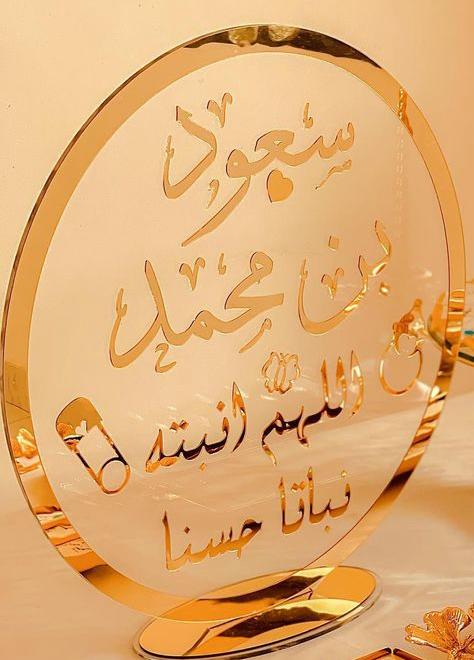 سعود
بن محمد
اللهم انبته
نباتا حسنا